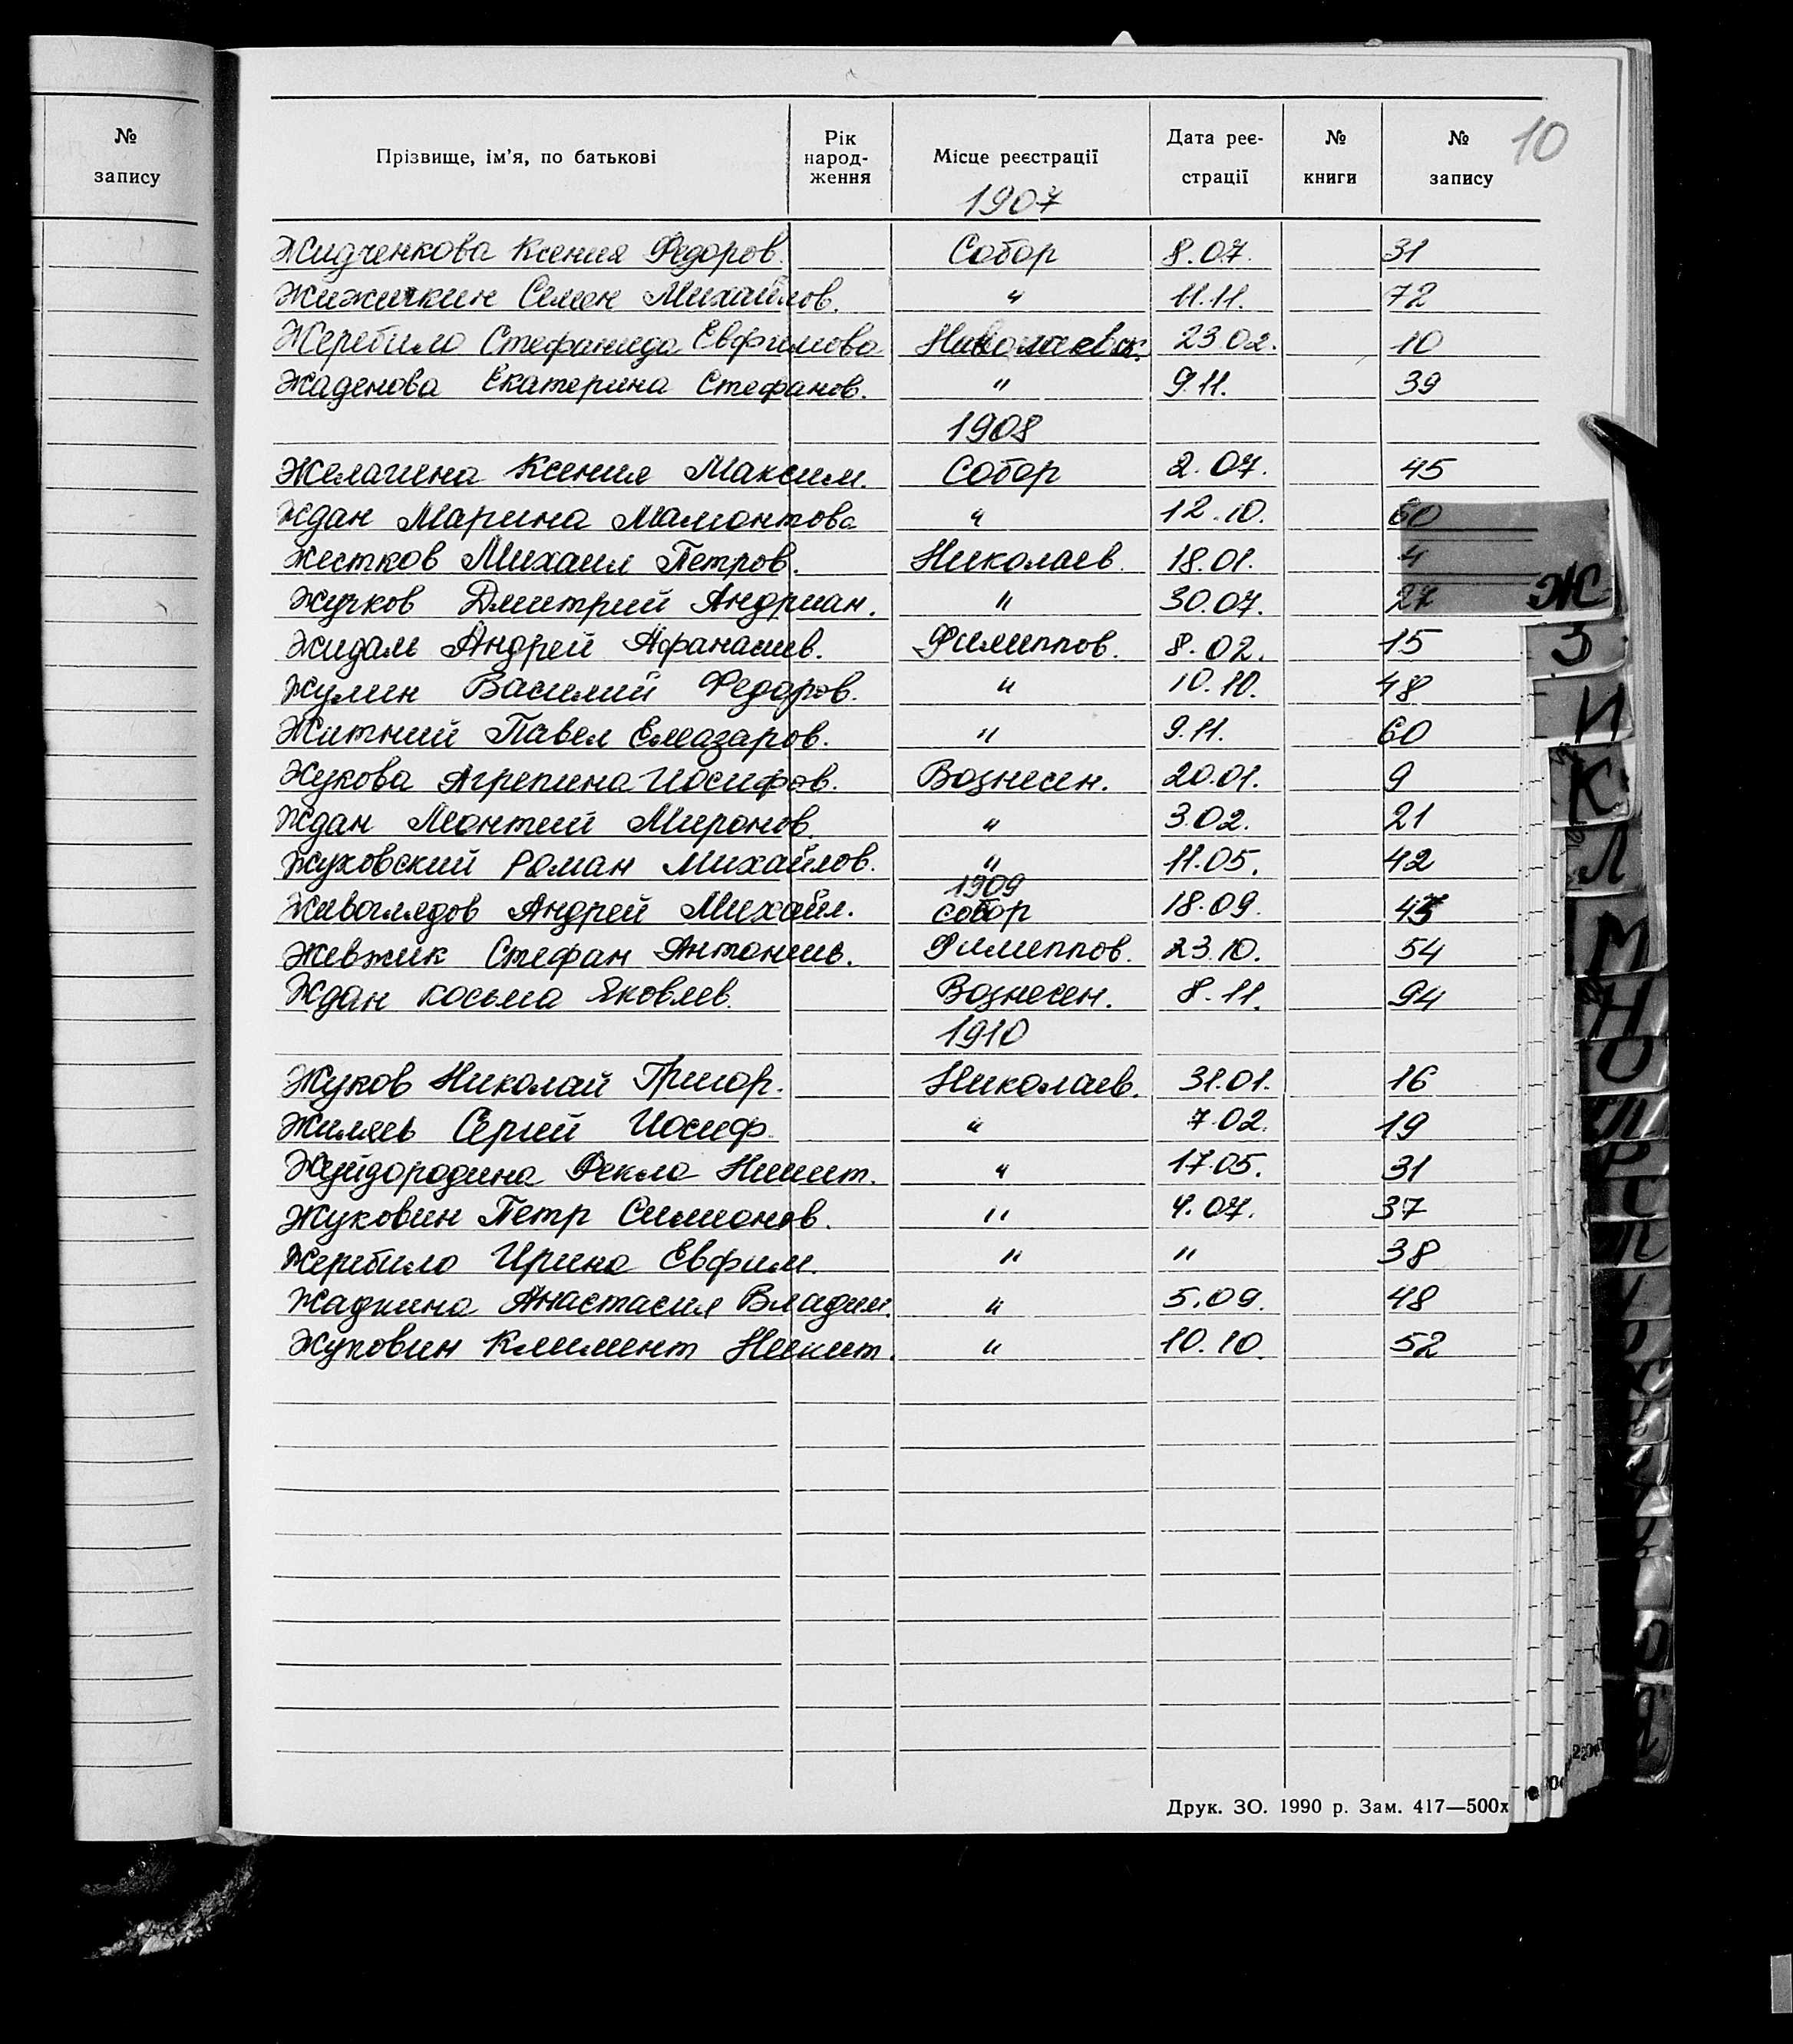 №
запису
Прізвище, ім'я, по батькові Рік народ-ження Місце реєстрації Дата реє-страції № книги № запису 10
1907
Жидченкова Ксения Федоров. Собор 8.07. 31
Жижичкин Семен Михайлов. " 11.11. 72
Жеребило Стефанида Евфимова Николаевск. 23.02. 10
Жаденова Екатерина Стефанов. " 9.11. 39
1908
Желагина Ксения Максим. Собор 2.07. 45
Ждан Марина Мамонтова " 12.10. 60
Жестков Михаил Петров. Николаев. 18.01. 4
Жучков Дмитрий Андриан. " 30.07. 27
Жидаль Андрей Афанасиев. Филиппов. 8.02. 15
Жулин Василий Федоров. " 10.10. 48
Житний Павел Елеазаров. " 9.11. 60
Жукова Агрепина Иосифов. Вознесен. 20.01. 9
Ждан Леонтий Миронов. " 3.02. 21
Жуховский Роман Михайлов. " 11.05. 42
1909
Живоглядов Андрей Михайл. Собор 18.09. 43
Жевжик Стефан Антониев. Филиппов. 23.10. 54
Ждан Косьма Яковлев. Вознесен. 8.11. 94
1910
Жуков Николай Григор. Николаев. 31.01. 16
Жиляев Сергий Иосиф. " 7.02. 19
Жуйдородина Фекла Никит. " 17.05. 31
Жуковин Петр Симионов. " 4.07. 37
Жеребило Ирина Евфим. " " 38
Жадкина Анастасия Владим. " 5.09. 48
Жуковин Климент Никит. " 10.10. 52
Друк. ЗО. 1990 р. Зам. 417—500х
Ж
З
И
К
Л
М
Н
О
П
Р
С